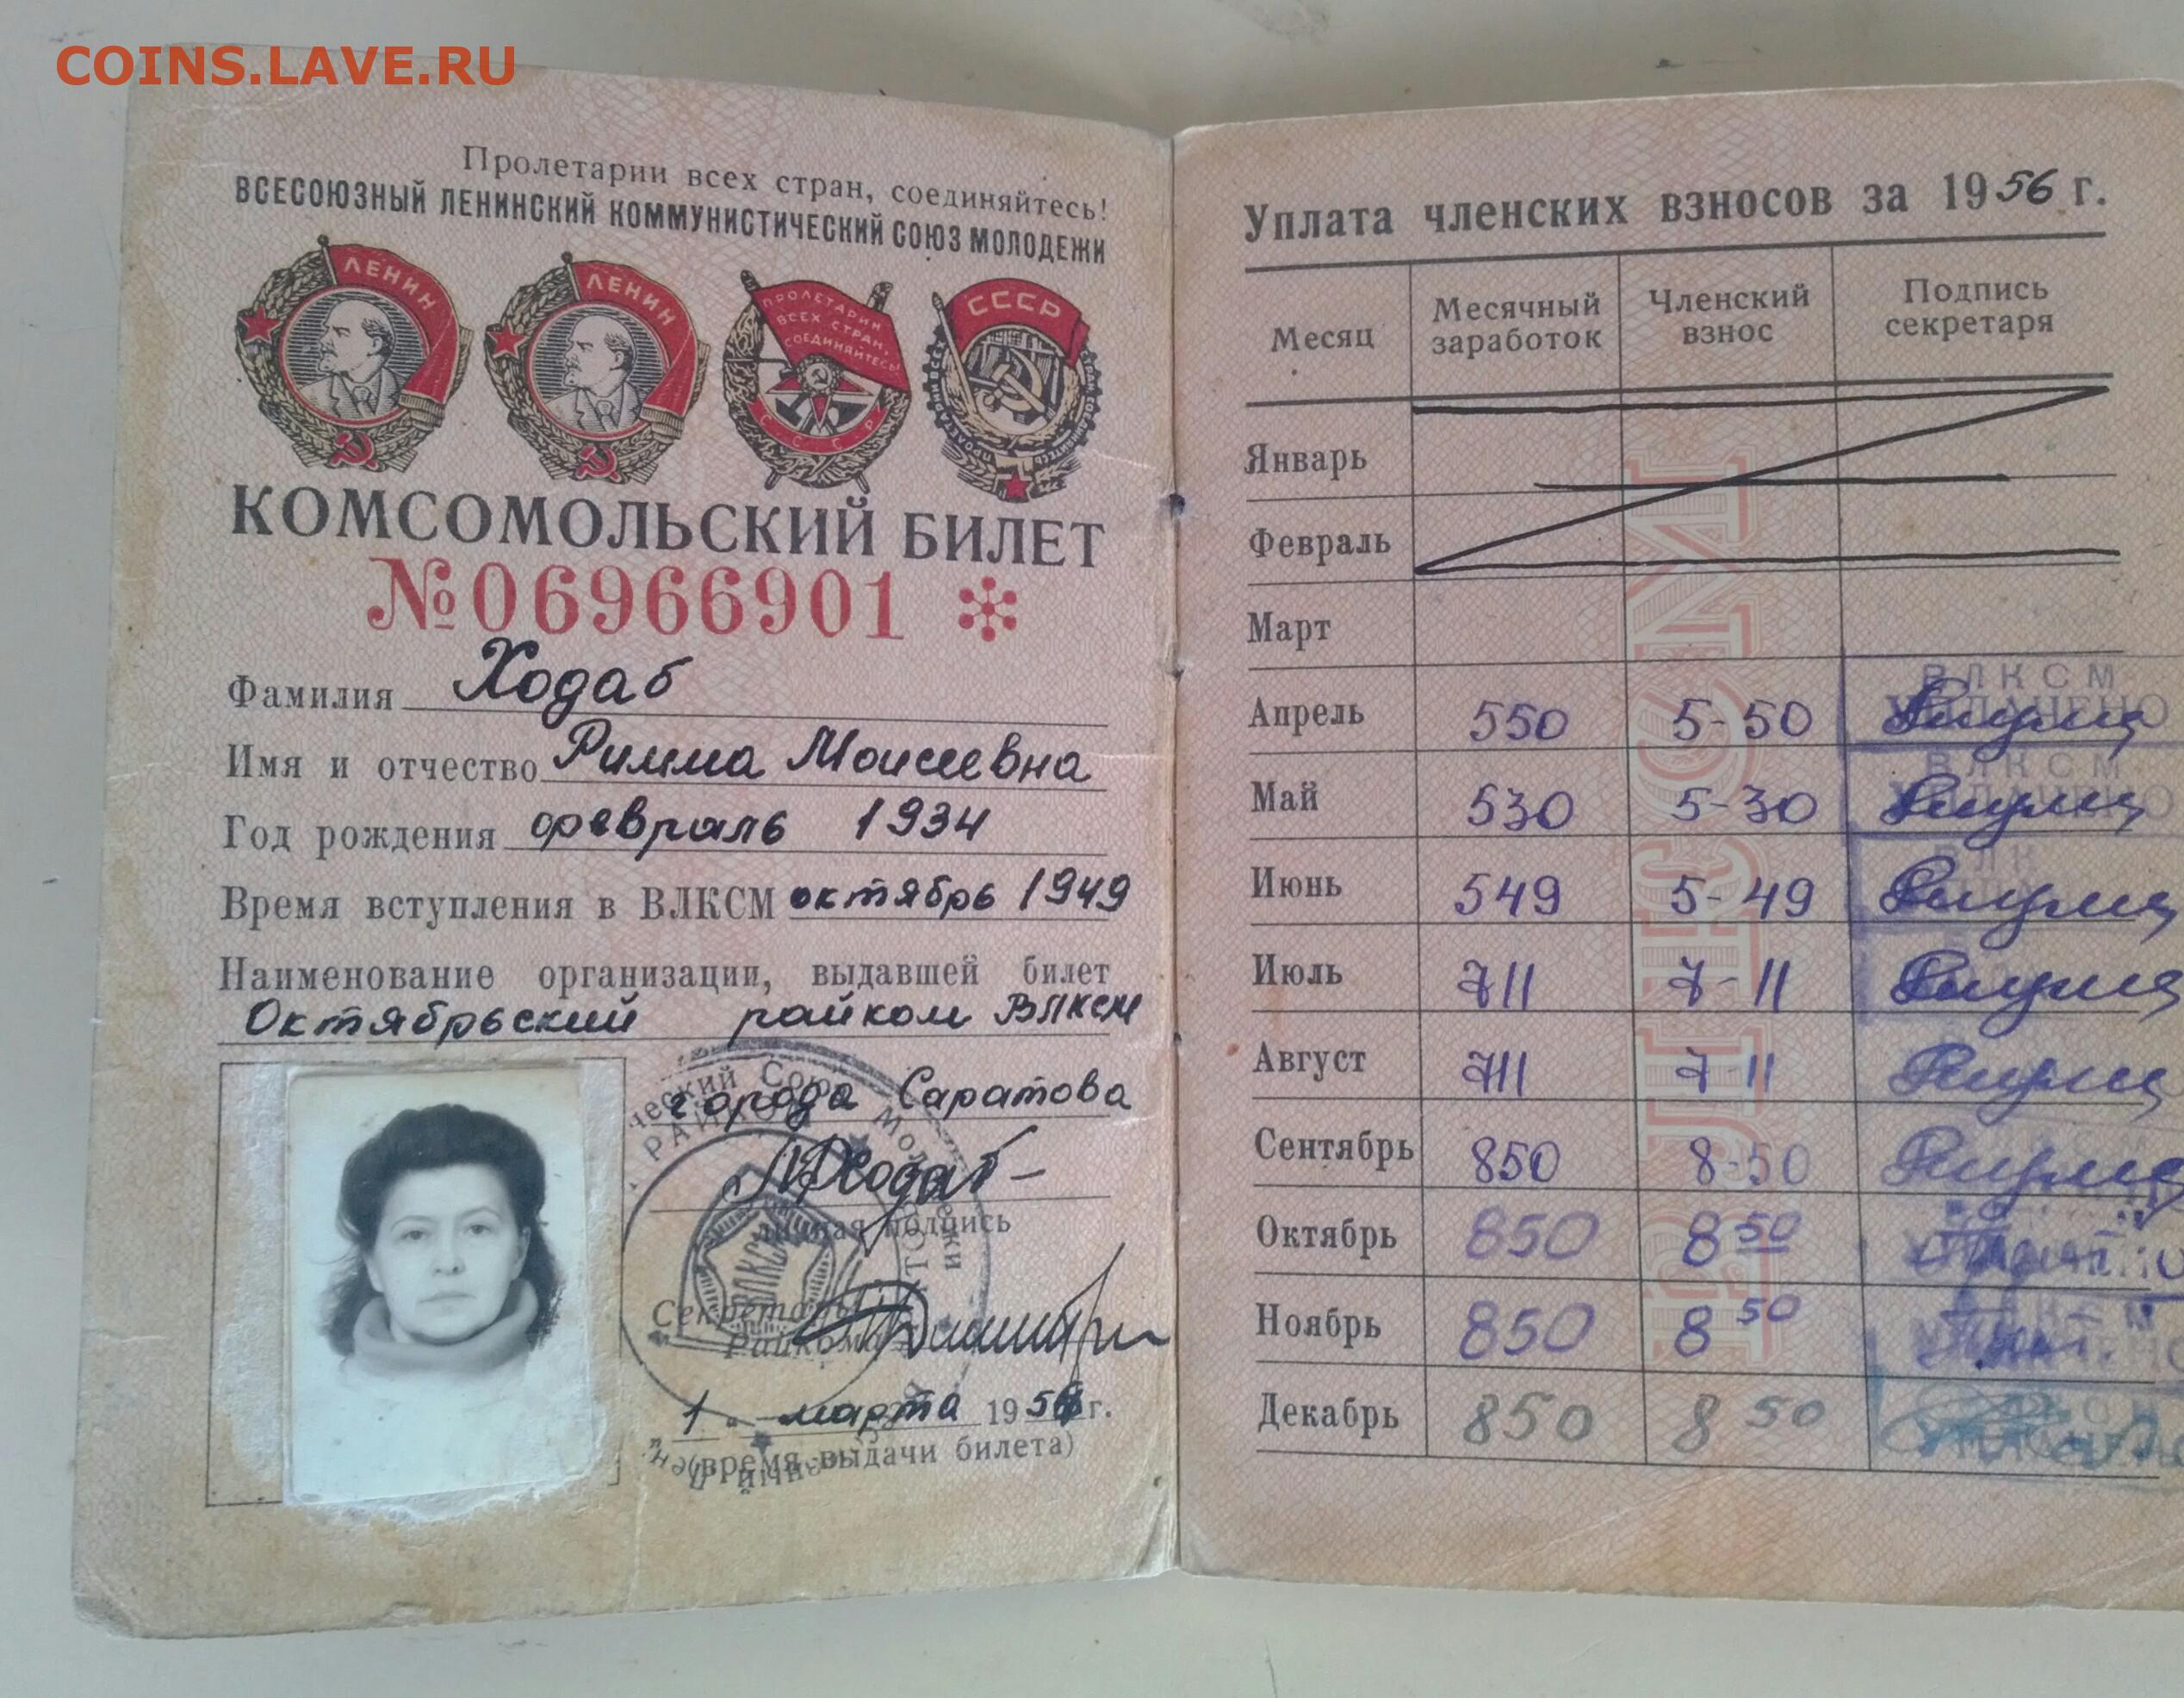 COINS.LAVE.RU
Пролетарии всех стран, соединяйтесь!
ВСЕСОЮЗНЫЙ ЛЕНИНСКИЙ КОММУНИСТИЧЕСКИЙ СОЮЗ МОЛОДЕЖИ
ЛЕНИН ЛЕНИН ПРОЛЕТАРИИ ВСЕХ СТРАН, СОЕДИНЯЙТЕСЬ СССР
СССР
КОМСОМОЛЬСКИЙ БИЛЕТ
№06966901
Фамилия Ходаб
Имя и отчество Римма Моисеевна
Год рождения февраль 1934
Время вступления в ВЛКСМ октябрь 1949
Наименование организации, выдавшей билет
Октябрьский райком ВЛКСМ
города Саратова
Ходаб
личная подпись
ВЛКСМ
Секретарь
Райкома
1 марта 1956 г.
(время выдачи билета)
Уплата членских взносов за 1956 г.
Месяц Месячный заработок Членский взнос Подпись секретаря
Январь
Февраль
Март
Апрель 550 5-50 ВЛКСМ УПЛАЧЕНО
Май 530 5-30 ВЛКСМ УПЛАЧЕНО
Июнь 549 5-49 ВЛК
Июль 711 7-11
Август 711 7-11
Сентябрь 850 8-50
Октябрь 850 8 50
Ноябрь 850 8 50
Декабрь 850 8 50
ВЛКСМ